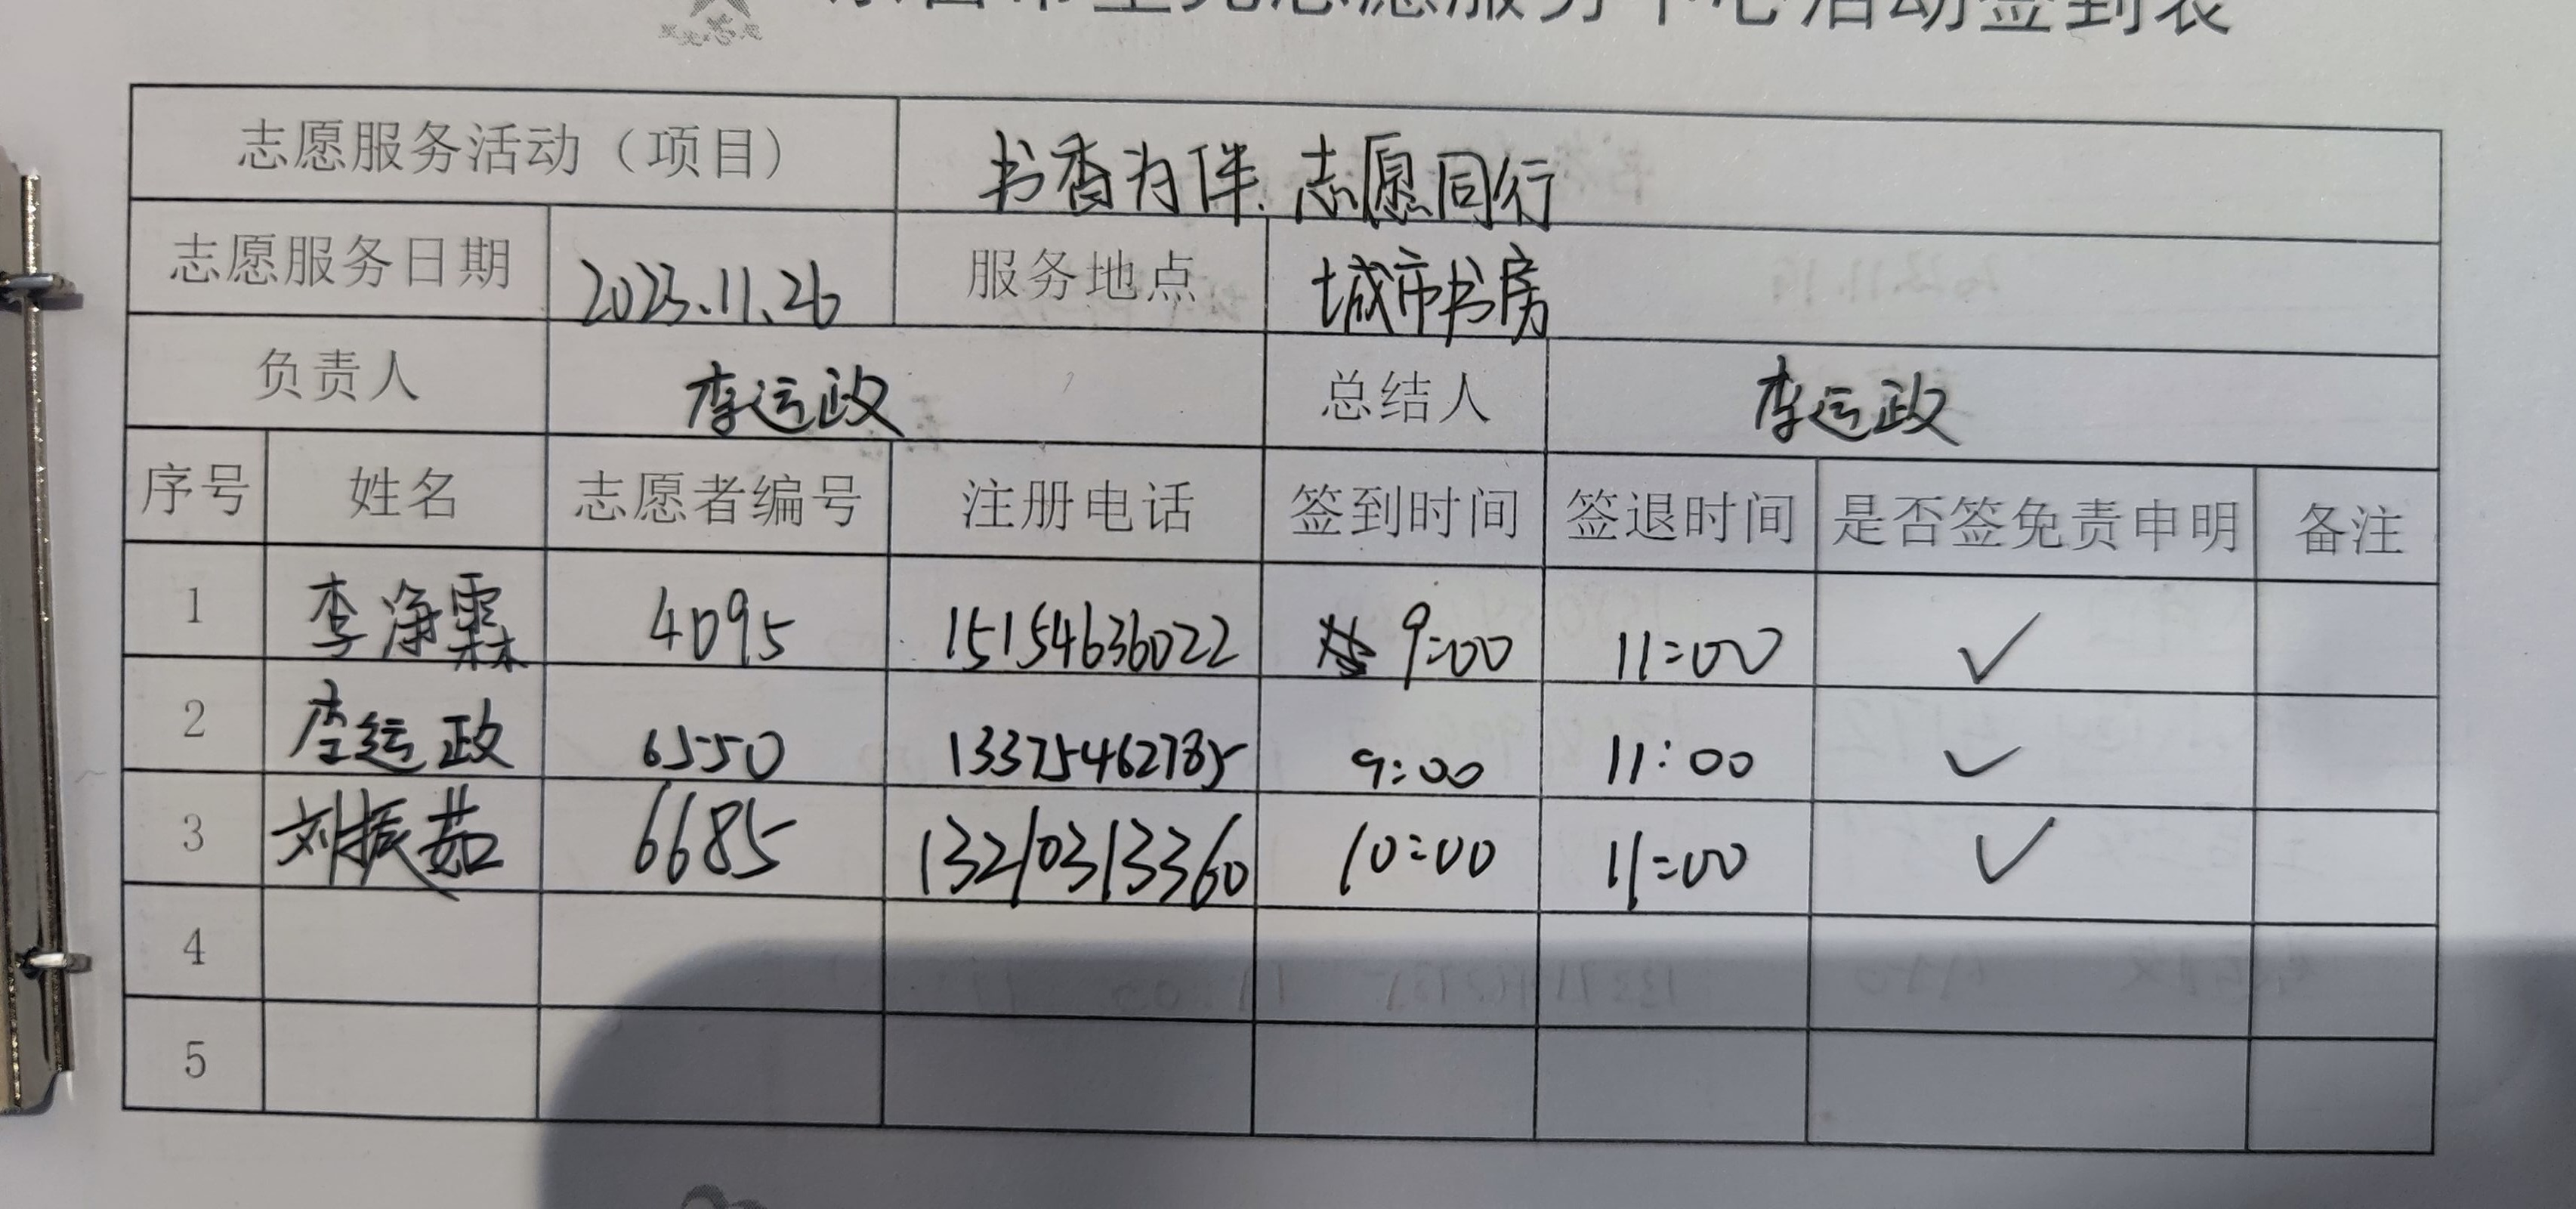 志愿服务中心活动签到表
志愿服务活动（项目） 书香为伴.志愿同行
志愿服务日期 2023.11.26 服务地点 城市书房
负责人 李运政 总结人 李运政
序号 姓名 志愿者编号 注册电话 签到时间 签退时间 是否签免责申明 备注
1 李净霖 4095 15154636022 9:00 11:00 ✓
2 李运政 6550 13375462785 9:00 11:00 ✓
3 刘振茹 6685 13210313360 10:00 11:00 ✓
4
5